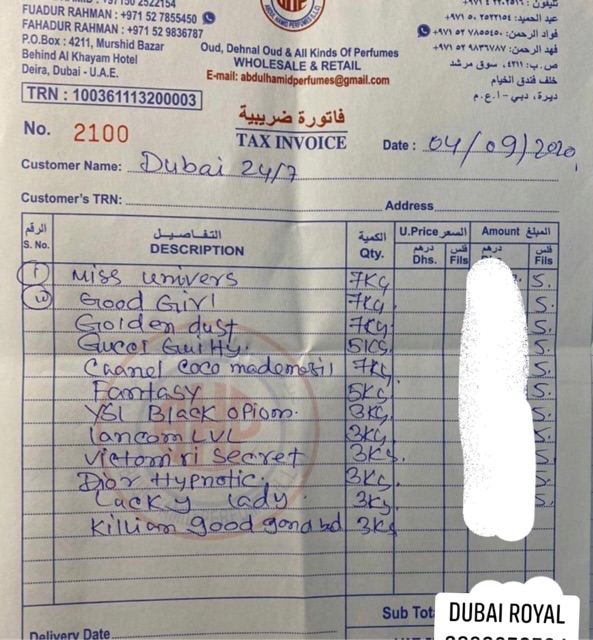 FUADUR RAHMAN : +971 52 7855450
FAHADUR RAHMAN : +971 52 9836787
P.O.Box : 4211, Murshid Bazar
Behind Al Khayam Hotel
Deira, Dubai - U.A.E.
TRN : 100361113200003
Oud, Dehnal Oud & All Kinds Of Perfumes
WHOLESALE & RETAIL
E-mail: abdulhamidperfumes@gmail.com
فؤاد الرحمن: ٧٨٥٥٤٥٠ ٥٢ ٩٧١+
فهد الرحمن: ٩٨٣٦٧٨٧ ٥٢ ٩٧١+
ص.ب: ٤٢١١، سوق مرشد
خلف فندق الخيام
ديرة، دبي - ا.ع.م
No. 2100
فاتورة ضريبية
TAX INVOICE
Date : 04/09/2020
Customer Name: Dubai 24/7
Customer's TRN:
Address
الرقم التفاصيل الكمية U.Price السعر Amount المبلغ
S. No. DESCRIPTION Qty. درهم Dhs. فلس Fils درهم فلس Fils
1 Miss univers 7KG 5.
Good Girl 7Kg 5.
Golden dust 7Kg 5.
Gucci Guilty. 5KG 5.
Chanel coco mademosil 7Kg 5.
Fantasy 5Kg 5.
YSL Black opiom. 3Kg 5.
lancom LVL 3Kg 5.
Victom'ri secret 3Kg. 5.
Dior Hypnotic. 3Kg 5.
Lucky lady 3Kg 5.
Killian good gone bd 3Kg
Sub Tot
DUBAI ROYAL
Delivery Date